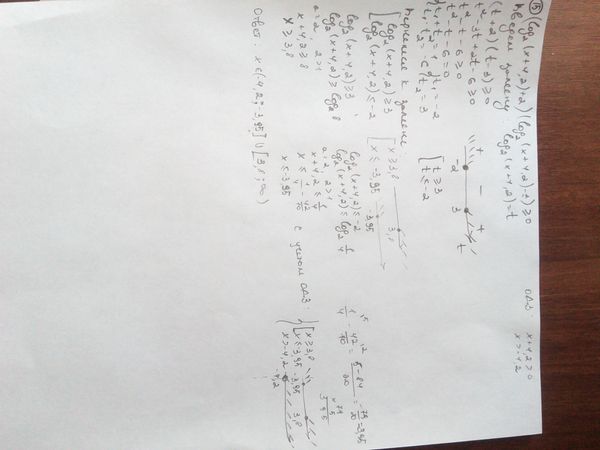 15) (log₂(x+4,2)+2)(log₂(x+4,2)-3) ≥ 0
ОДЗ: x+4,2>0
x>-4,2
Введем замену: log₂(x+4,2)=t
(t+2)(t-3) ≥0
t²-3t+2t-6≥0
t²-t-6≥0
t²-t-6=0
t₁+t₂=1 t₁=-2
t₁·t₂=-6 t₂=3
+ - +
-2 3 t
[ t≥3
t≤-2
Вернемся к замене
[ log₂(x+4,2)≥3
log₂(x+4,2)≤-2
[ x≥3,8
x≤-3,95
3,8
-3,95
log₂(x+4,2)≥3 ;
log₂(x+4,2)≥log₂8
a=2, 2>1
x+4,2≥8
x≥3,8
log₂(x+4,2)≤-2
log₂(x+4,2)≤log₂ 1/4
a=2, 2>1
x+4,2≤1/4
x≤ 1/4 - 42/10
x≤-3,95
1/4 - 42/10 = 5-84/20 = -79/20 = -3,95
79
5
395
с учетом ОДЗ:
{ [ x≥3,8
x≤-3,95
x>-4,2
-3,95 3,8
-4,2
Ответ: x∈(-4,2;-3,95]∪[3,8;∞)